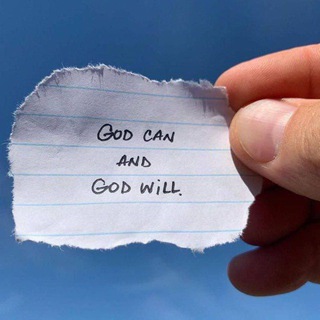 GOD CAN
AND
GOD WILL.